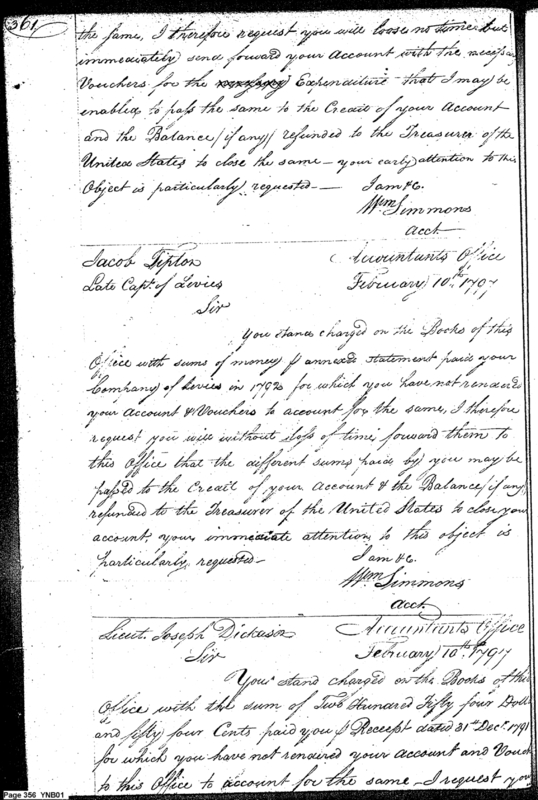 361
the same, I therefore request you will loose no time but
immediately send forward your Account with the necessary
Vouchers for the Expenditure that I may be
enabled to pass the same to the Credit of your Account
and the Balance (if any) refunded to the Treasurer of the
United States to close the same – your early attention to this
Object is particularly requested –
I am &c.
Wm Simmons
Acct.
Jacob Tipton
Late Capt. of Levies
Accountants Office
February 10th 1797
Sir
You stand charged on the Books of this
Office with sums of money annexed statement paid your
Company of Levies in 1792 for which you have not rendered
your Account & Vouchers to account for the same, I therefore
request you will without loss of time forward them to
this Office that the different sums paid by you may be
passed to the Credit of your Account & the Balance (if any)
refunded to the Treasurer of the United States to close your
account, your immediate attention to this object is
particularly requested –
I am &c.
Wm Simmons
Acct.
Lieut. Joseph Dickason
Accountants Office
February 10th 1797
Sir
You stand charged on the Books of this
Office with the sum of Two Hundred Fifty four Doll
and fifty four Cents paid you Receept dated 31st Decr. 1791
for which you have not rendered your Account and Vouch
to this Office to account for the same – I request you
Page 356 YNB01